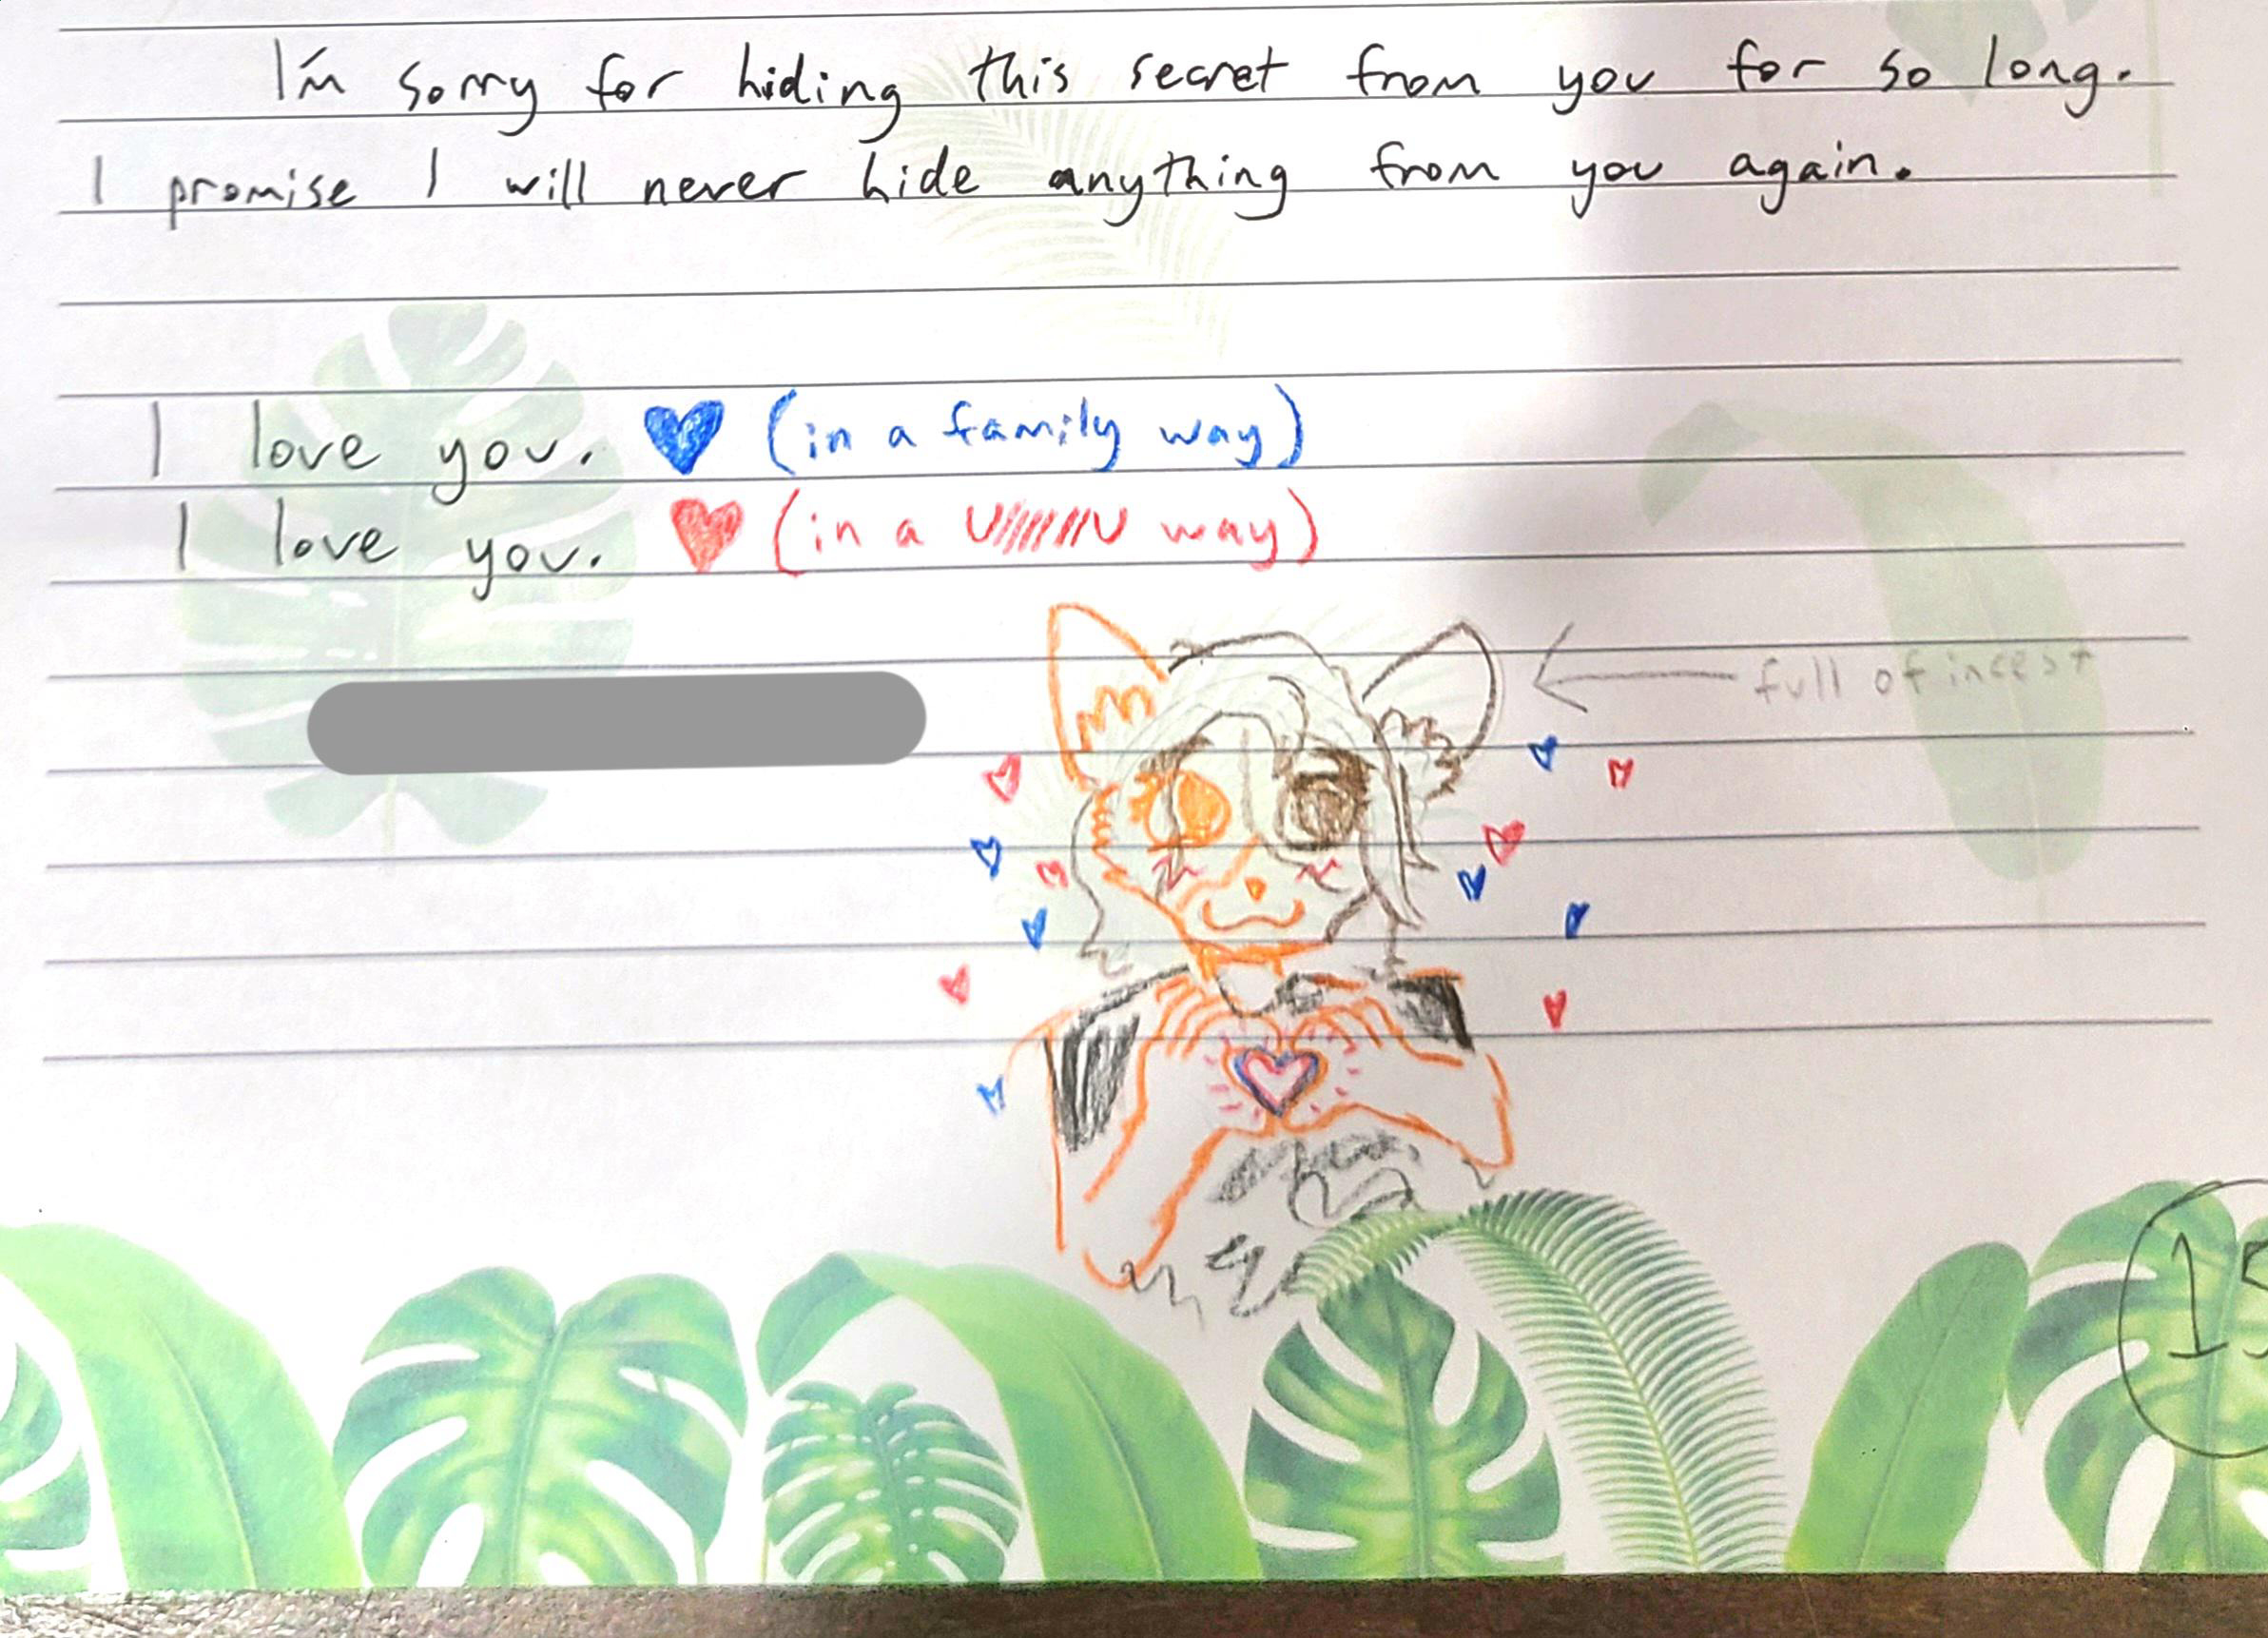 I'm sorry for hiding this secret from you for so long.
I promise I will never hide anything from you again.
I love you. (in a family way)
I love you. (in a way)
full of incest
15